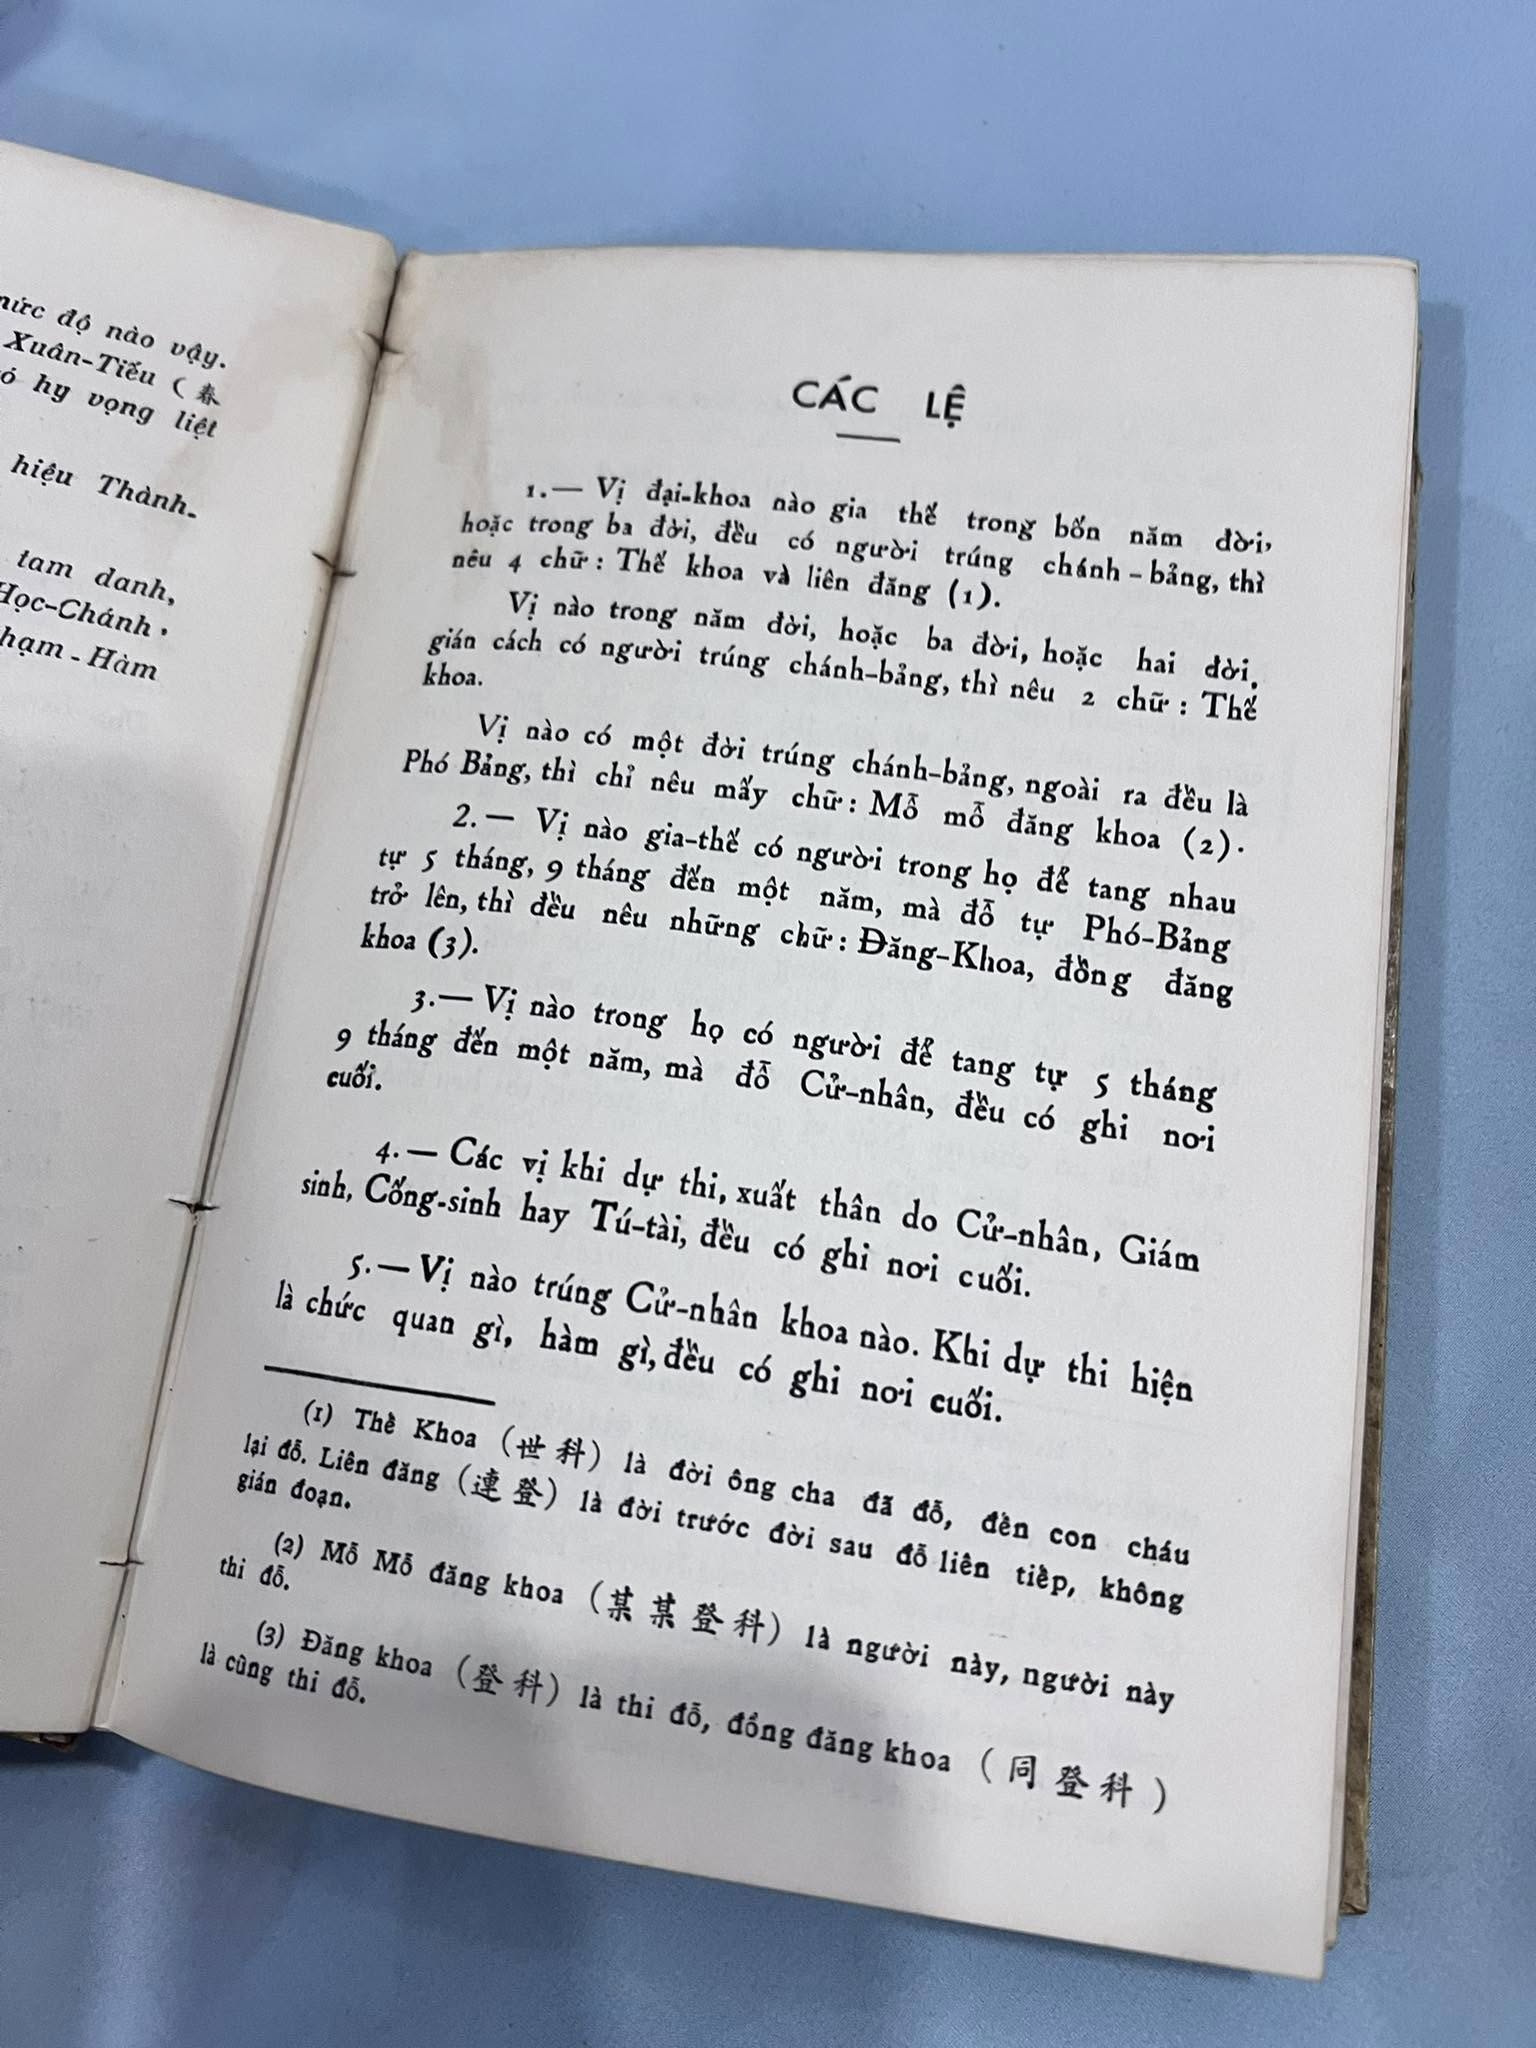 nức độ nào vậy.
Xuân-Tiếu (春
hy vọng liệt
hiệu Thành-
tam danh,
Học-Chánh.
Phạm-Hàm
CÁC LỆ
1.— Vị đại-khoa nào gia thế trong bốn năm đời,
hoặc trong ba đời, đều có người trúng chánh-bảng, thì
nêu 4 chữ : Thế khoa và liên đăng (1).
Vị nào trong năm đời, hoặc ba đời, hoặc hai đời,
gián cách có người trúng chánh-bảng, thì nêu 2 chữ : Thế
khoa.
Vị nào có một đời trúng chánh-bảng, ngoài ra đều là
Phó Bảng, thì chỉ nêu mấy chữ : Mỗ mỗ đăng khoa (2).
2.— Vị nào gia-thế có người trong họ để tang nhau
tự 5 tháng, 9 tháng đến một năm, mà đỗ tự Phó-Bảng
trở lên, thì đều nêu những chữ : Đăng-Khoa, đồng đăng
khoa (3).
3.— Vị nào trong họ có người để tang tự 5 tháng
9 tháng đến một năm, mà đỗ Cử-nhân, đều có ghi nơi
cuối.
4.— Các vị khi dự thi, xuất thân do Cử-nhân, Giám
sinh, Cống-sinh hay Tú-tài, đều có ghi nơi cuối.
5.— Vị nào trúng Cử-nhân khoa nào. Khi dự thi hiện
là chức quan gì, hàm gì, đều có ghi nơi cuối.
(1) Thế Khoa (世科) là đời ông cha đã đỗ, đến con cháu
lại đỗ. Liên đăng (連登) là đời trước đời sau đỗ liên tiếp, không
gián đoạn.
(2) Mỗ Mỗ đăng khoa (某某登科) là người này, người này
thi đỗ.
(3) Đăng khoa (登科) là thi đỗ, đồng đăng khoa (同登科)
là cùng thi đỗ.